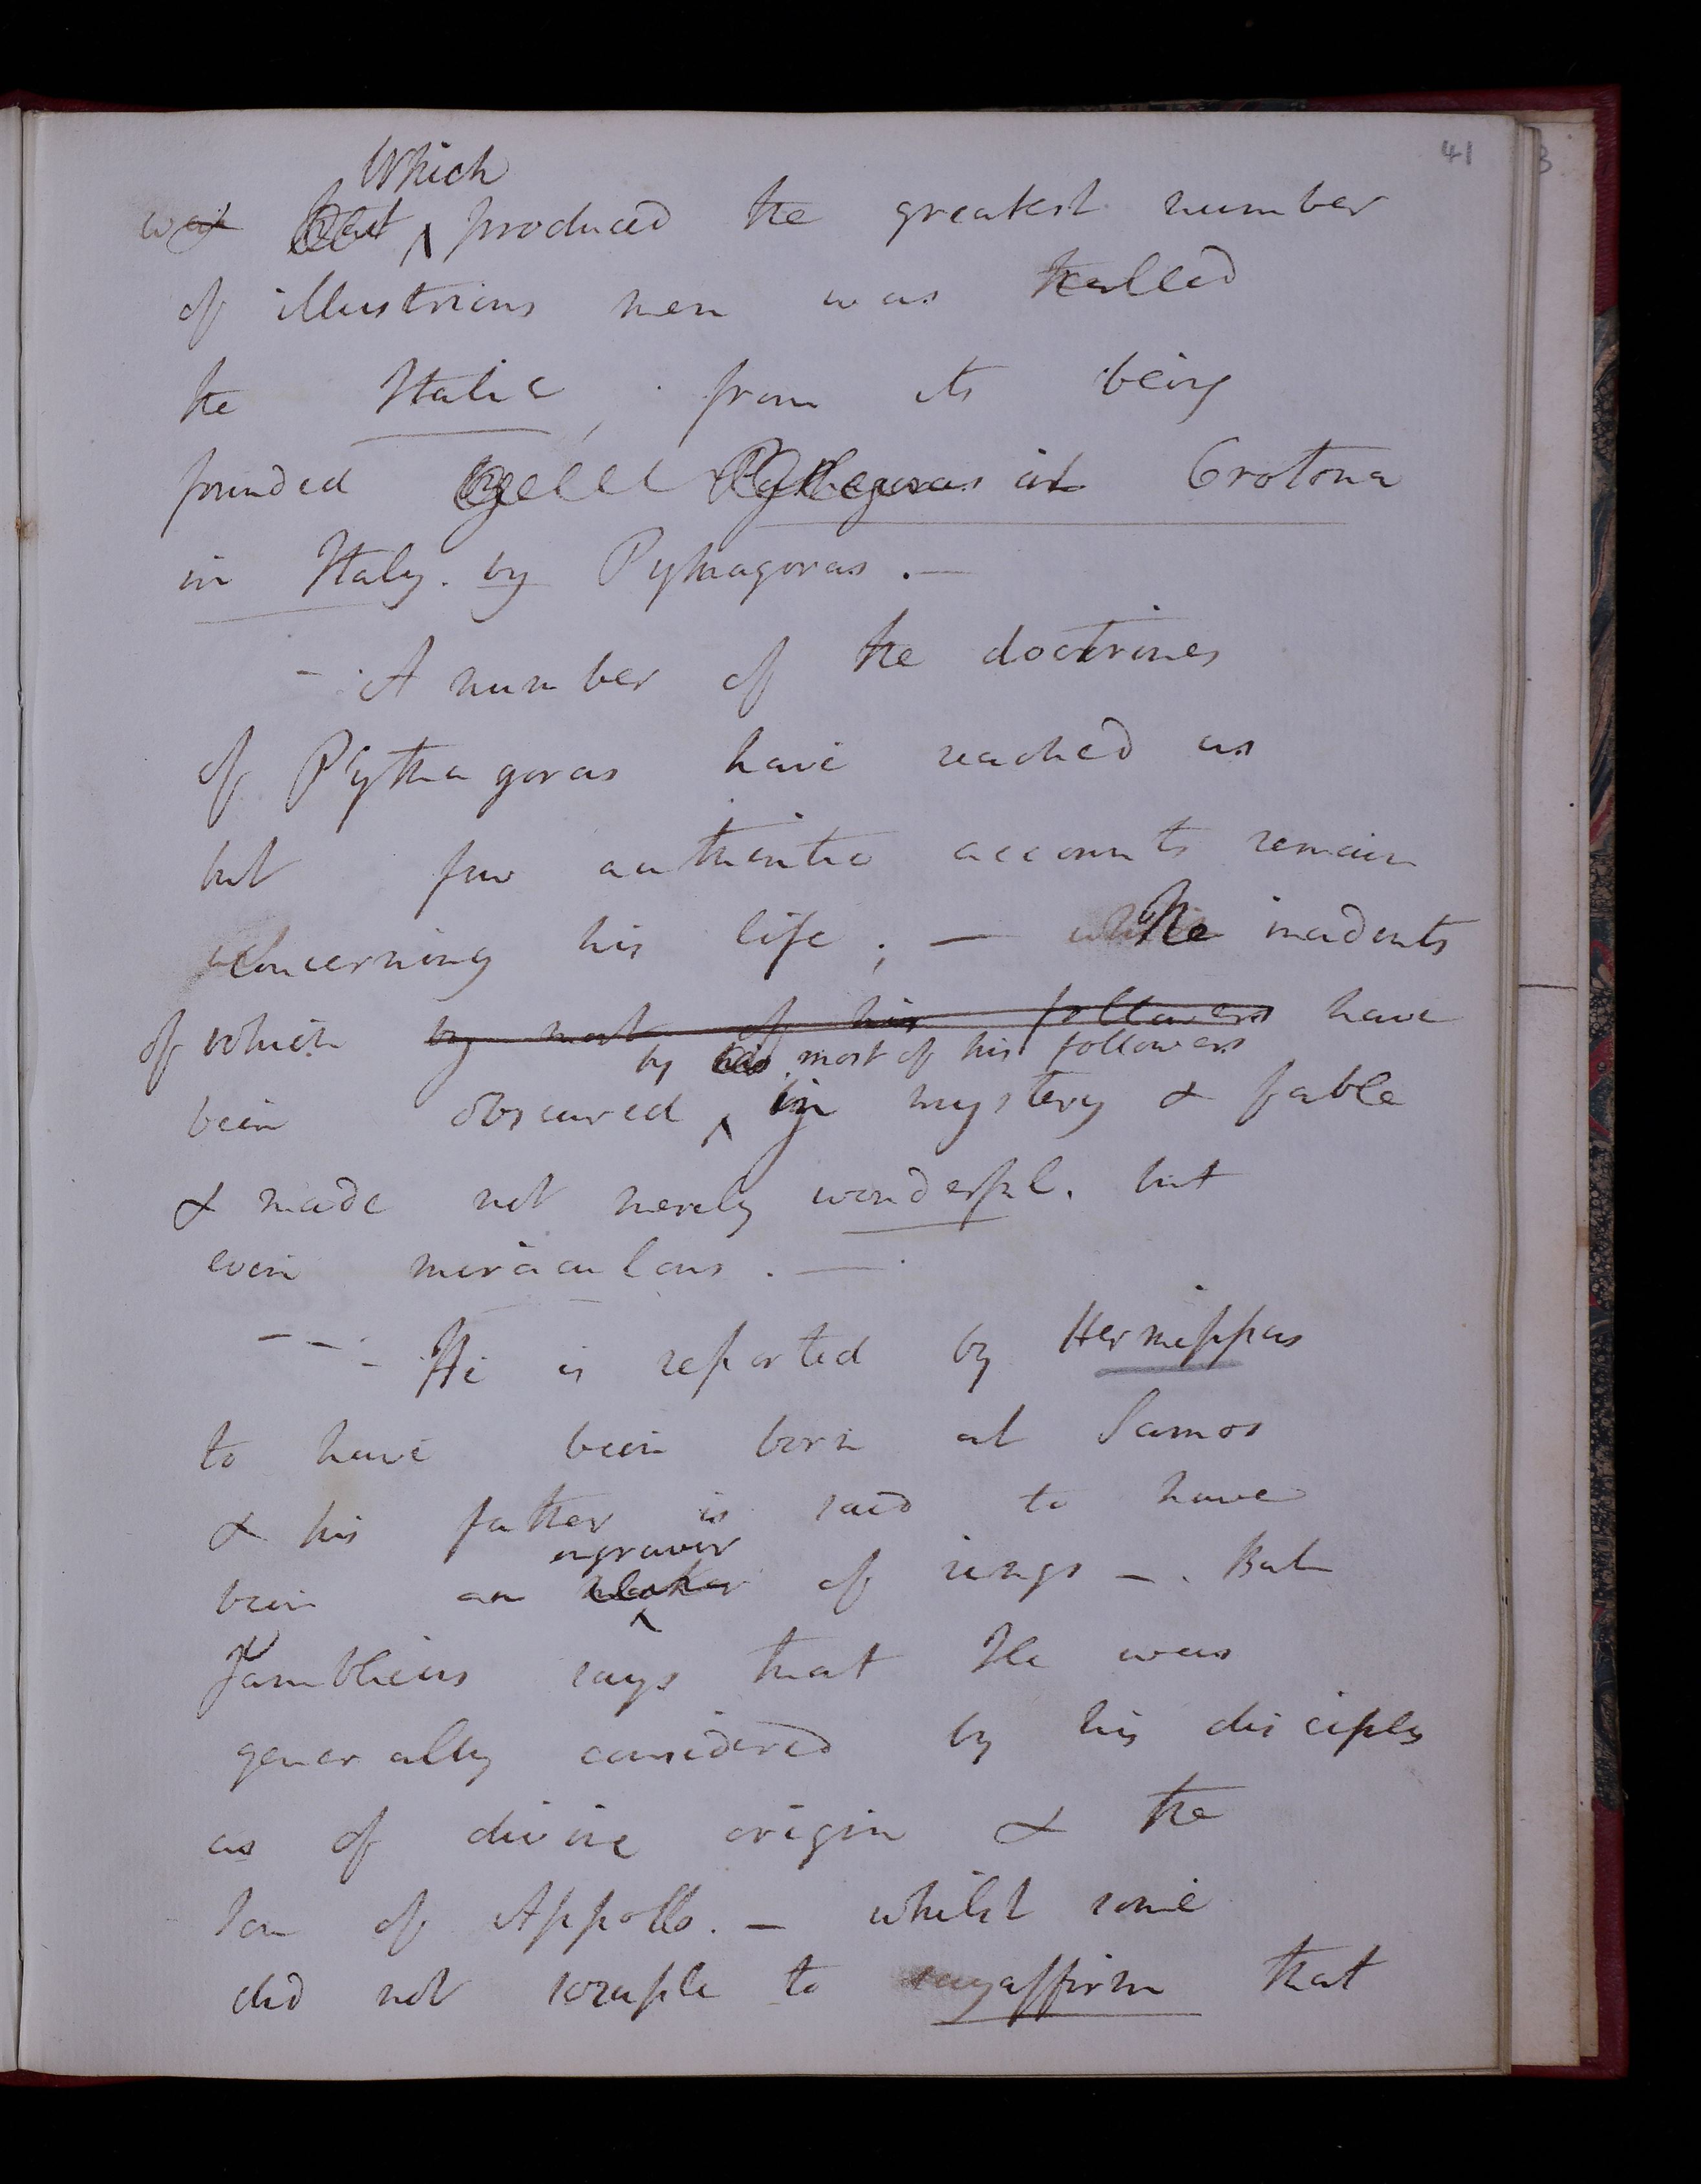 41
Which
produced the greatest number
of illustrious men was called
the Italic, from its being
founded at Crotona
in Italy. by Pythagoras. —
– A number of the doctrines
of Pythagoras have reached us
but few authentic accounts remain
concerning his life; — The incidents
of which by most of his followers have
by most of his followers
been obscured in mystery & fable
& made not merely wonderful. but
even miraculous. —
– – – He is reported by Hermippus
to have been born at Samos
& his father is said to have
engraver
been an maker of rings –. But
Jamblicus says that He was
generally considered by his disciples
as of divine origin & the
son of Appollo. – whilst some
did not scruple to say affirm that